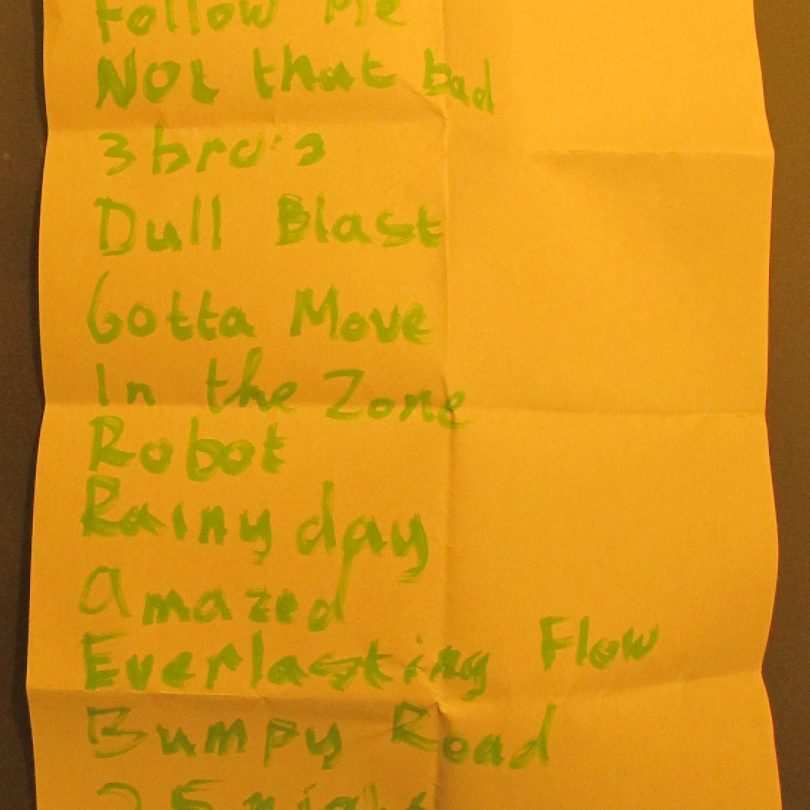 Follow Me
Not that bad
3 bro's
Dull Blast
Gotta Move
In the Zone
Robot
Rainy day
Amazed
Everlasting Flow
Bumpy Road